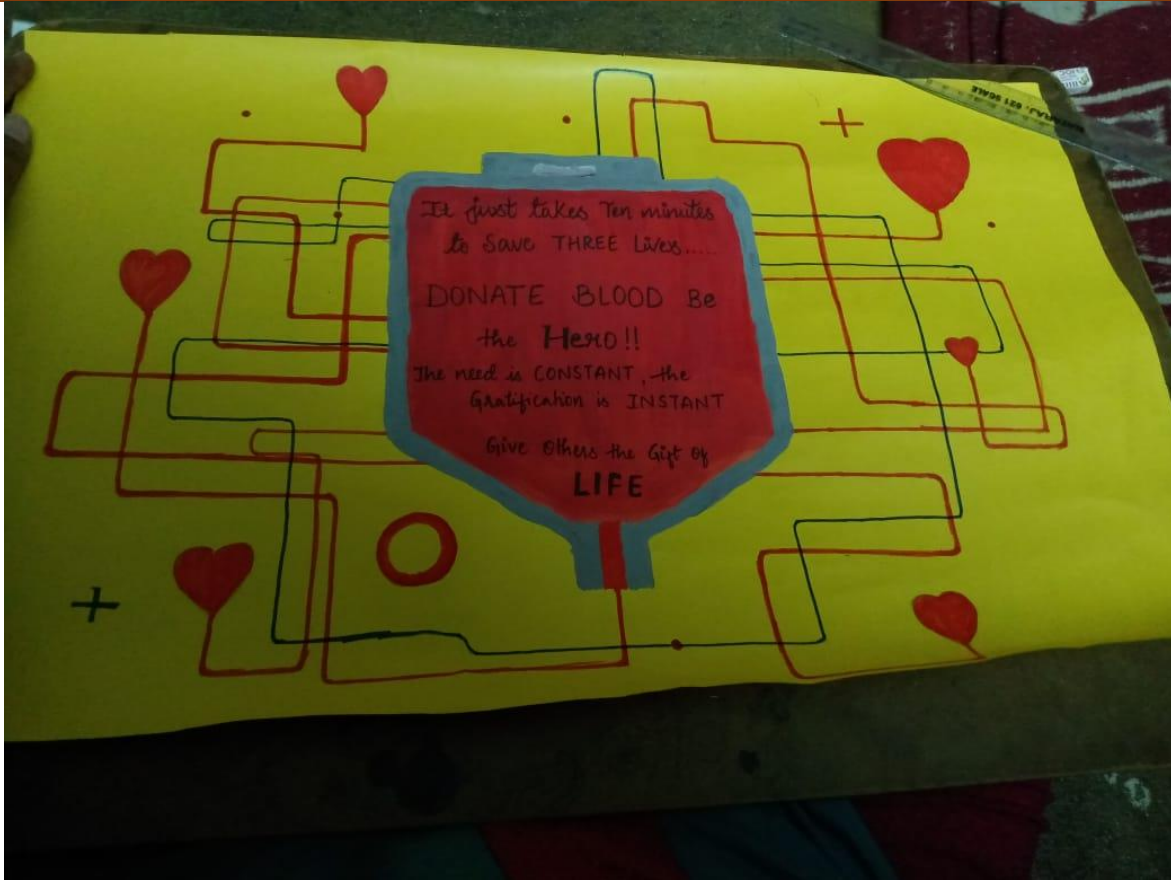 It just takes Ten minutes
to Save THREE Lives.....
DONATE BLOOD Be
the Hero!!
The need is CONSTANT, the
Gratification is INSTANT
Give Others the Gift of
LIFE
621 SCALE